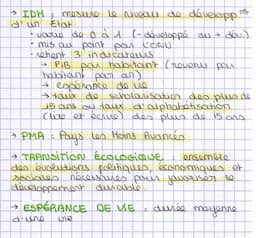 → IDH : mesure le niveau de développmt
d'un État
• varie de 0 à 1 (- développé au + dév.)
• mis au point par l'ONU
• retient 3 indicateurs
→ PIB par habitant (revenu par
habitant par an)
→ espérance de vie
→ taux de scolarisation des plus de
15 ans ou taux d'alphabétisation
(lire et écrire) des plus de 15 ans
→ PMA : Pays les Moins Avancés
→ TRANSITION ÉCOLOGIQUE : ensemble
des évolutions politiques, économiques et
sociales nécessaires pour favoriser le
développement durable
→ ESPÉRANCE DE VIE : durée moyenne
d'une vie